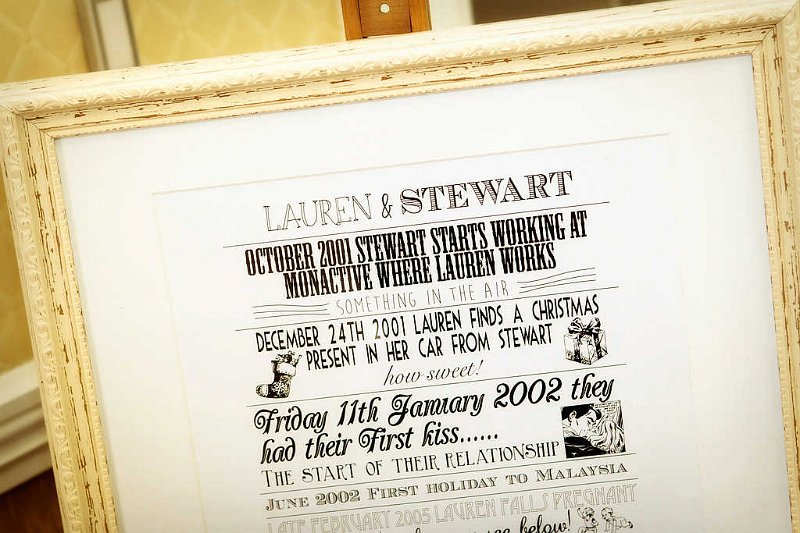 LAUREN & STEWART
OCTOBER 2001 STEWART STARTS WORKING AT
MONACTIVE WHERE LAUREN WORKS
SOMETHING IN THE AIR
DECEMBER 24TH 2001 LAUREN FINDS A CHRISTMAS
PRESENT IN HER CAR FROM STEWART
how sweet!
Friday 11th January 2002 they
had their First kiss......
THE START OF THEIR RELATIONSHIP
JUNE 2002 FIRST HOLIDAY TO MALAYSIA
LATE FEBRUARY 2005 LAUREN FALLS PREGNANT
see below!